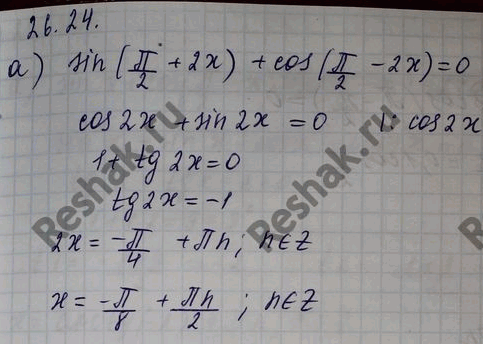 26.24.
а) sin(π/2 + 2x) + cos(π/2 - 2x) = 0
cos 2x + sin 2x = 0 |: cos 2x
1 + tg 2x = 0
tg 2x = -1
2x = -π/4 + πn; n∈Z
x = -π/8 + πn/2; n∈Z
Reshak.ru
Reshak.ru